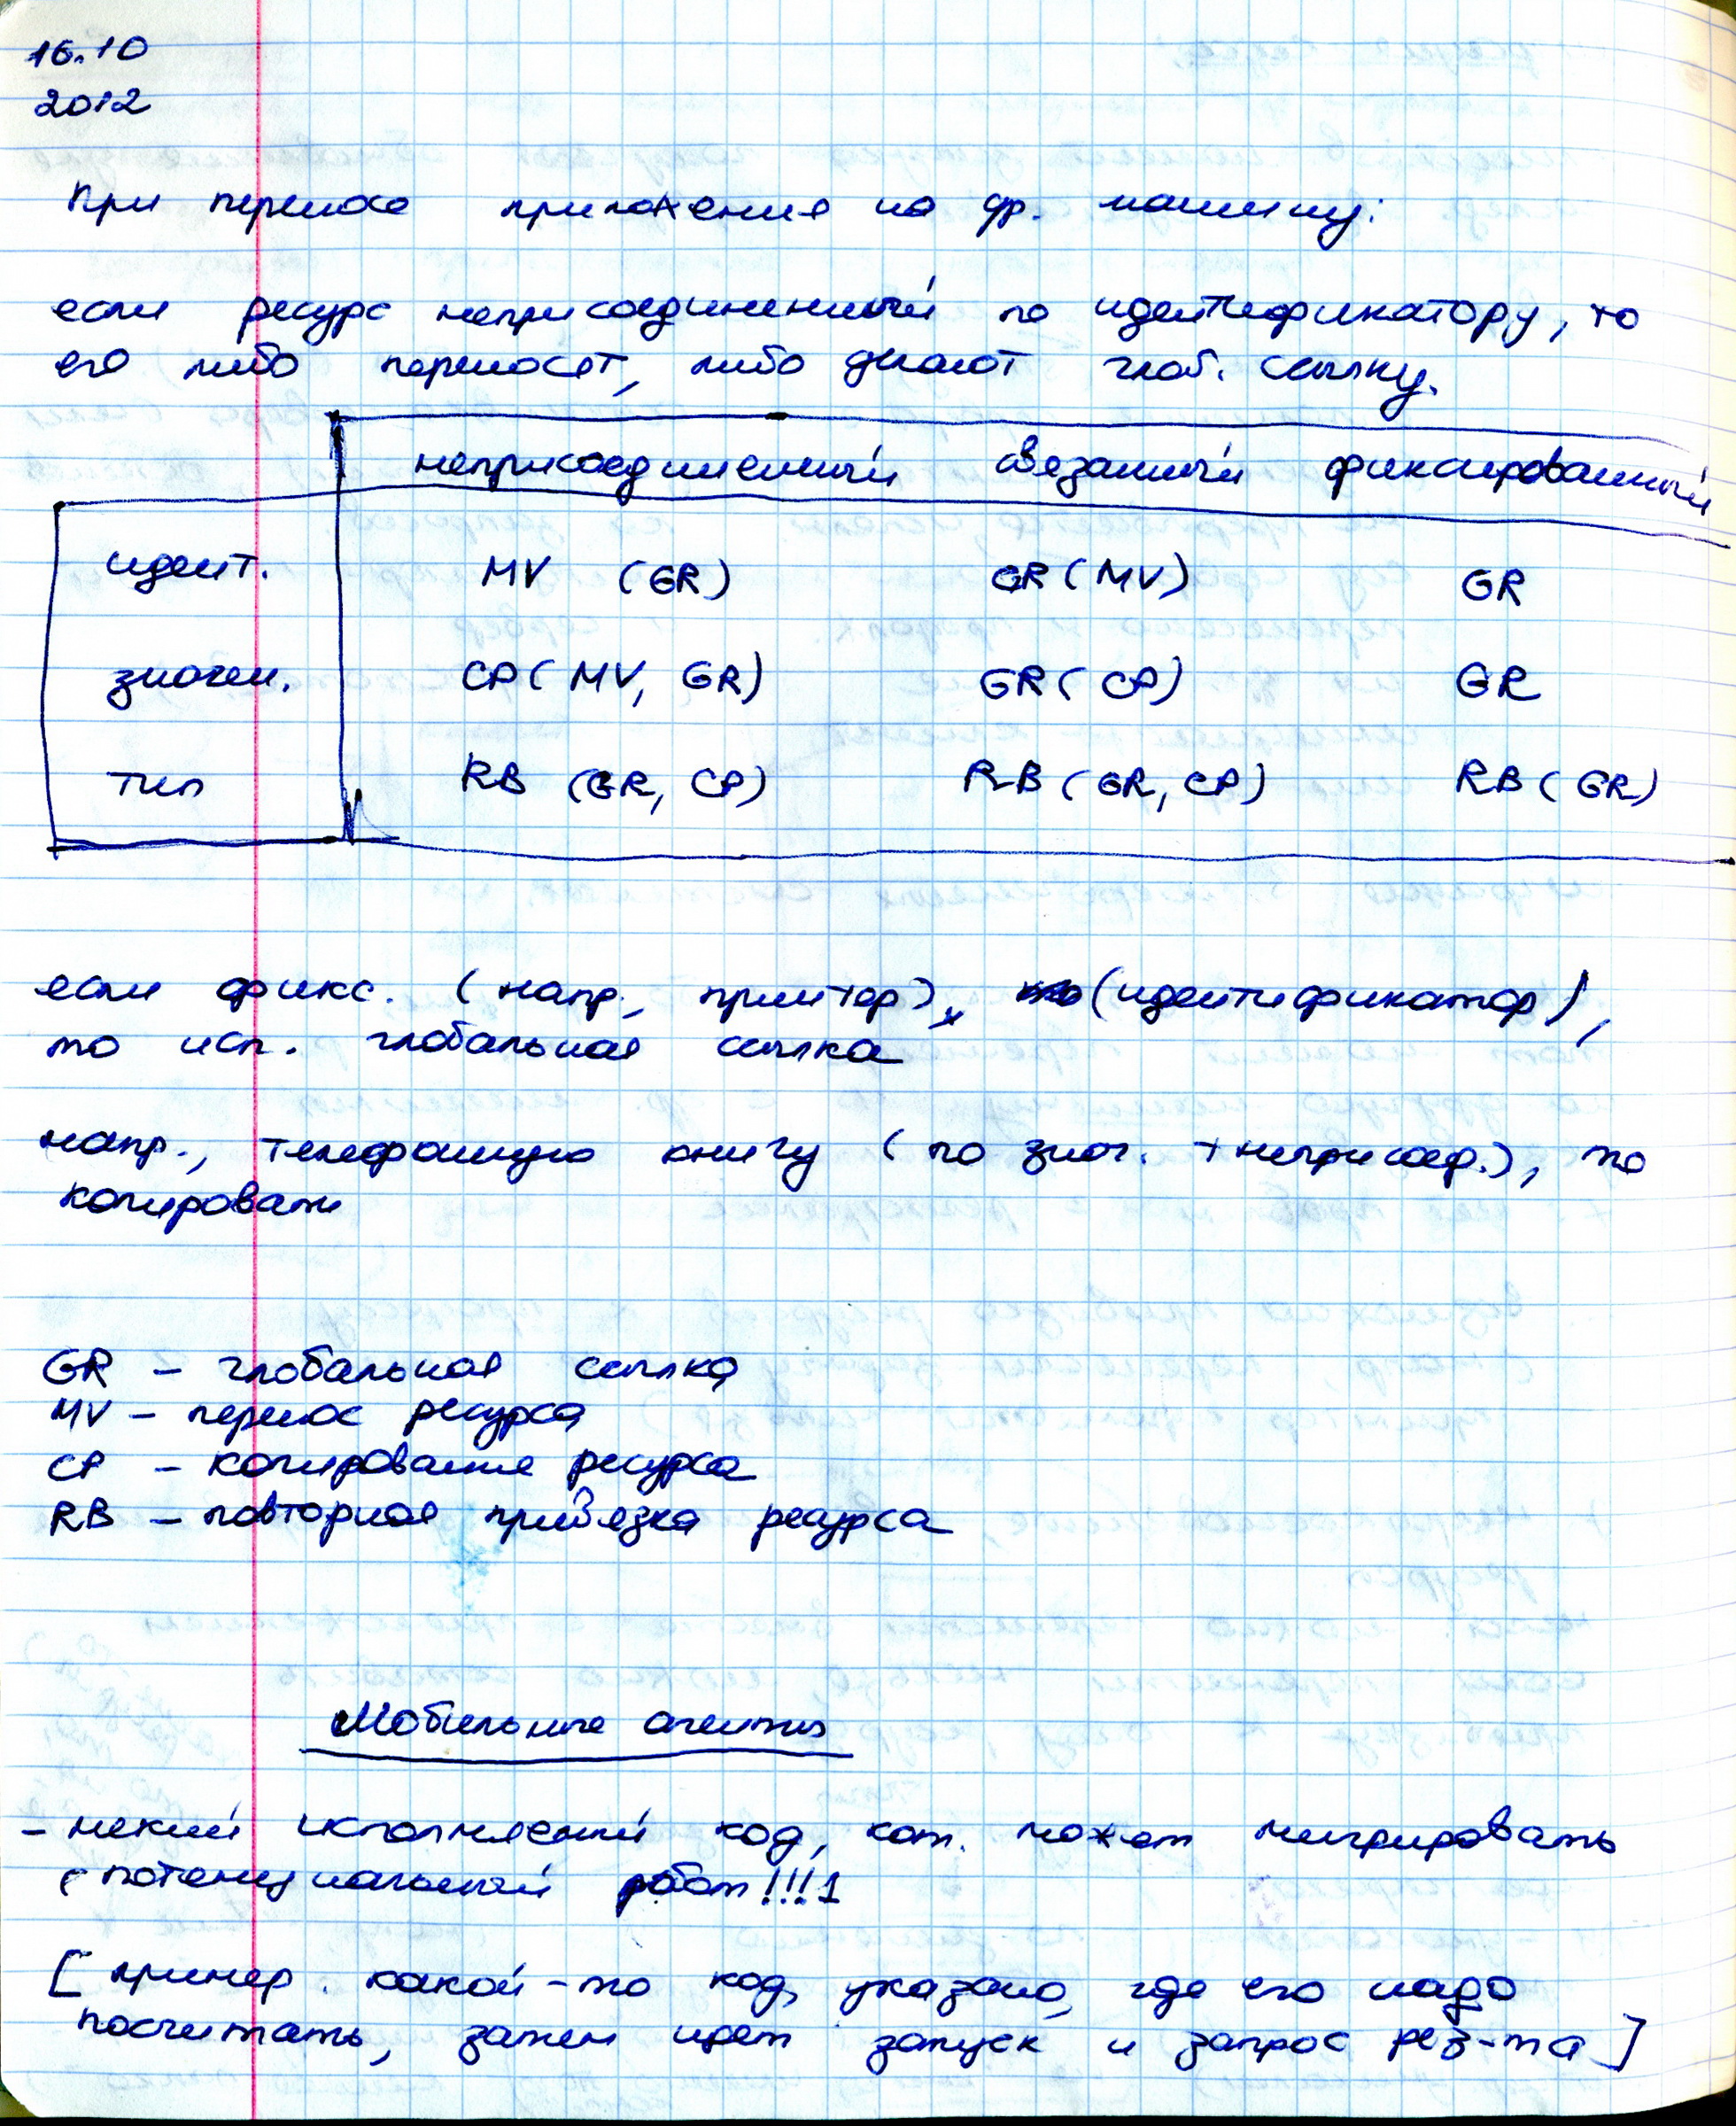 16.10
2012
При переносе приложения на др. машину:
если ресурс неприсоединенный по идентификатору, то
его либо переносят, либо делают глоб. ссылку.
неприсоединенный связанный фиксированный
идент. MV (GR) GR (MV) GR
значен. CP (MV, GR) GR (CP) GR
тип RB (GR, CP) RB (GR, CP) RB (GR)
если фикс. (напр., принтер), (идентификатор),
то исп. глобальная ссылка
напр., телефонную книгу (по знач. + неприсоед.), то
копировать
GR – глобальная ссылка
MV – перенос ресурса
CP – копирование ресурса
RB – повторная привязка ресурса
Мобильные агенты
– некий исполняемый код, кот. может мигрировать
(потенциальный робот!!!1
[пример. какой-то код, указано, где его надо
посчитать, затем идет запуск и запрос рез-та]